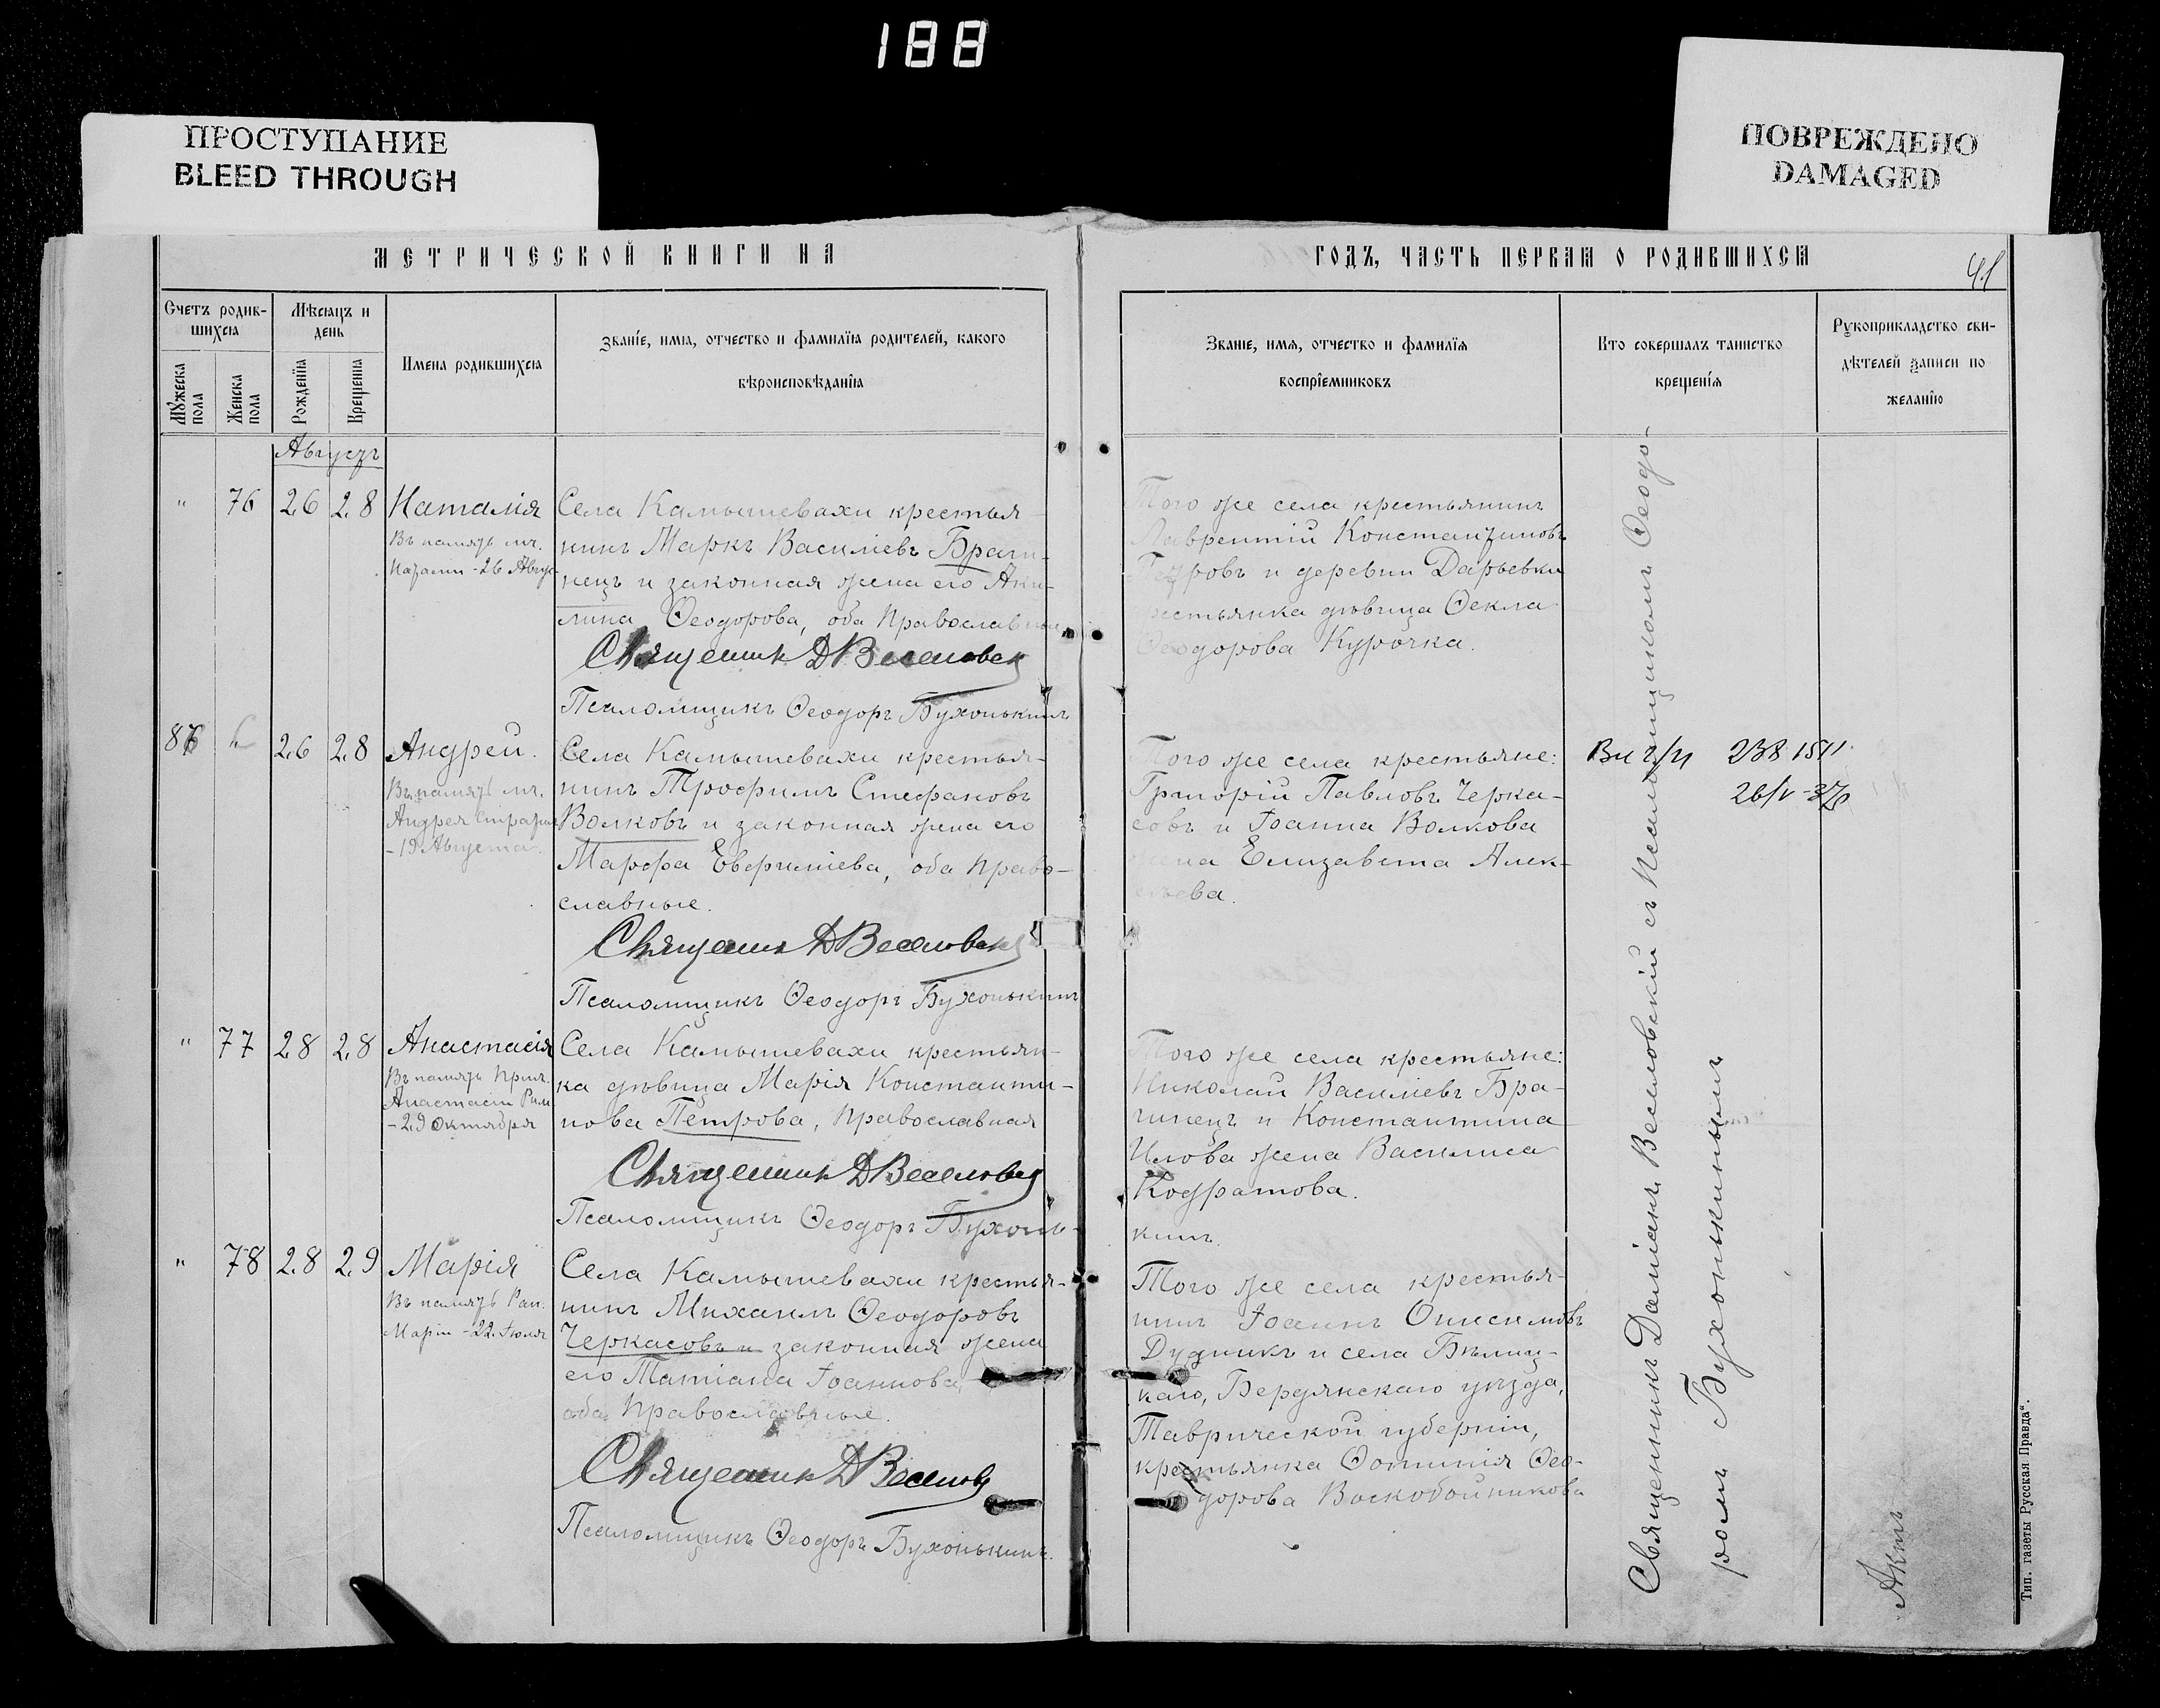 188
ПРОСТУПАНИЕ
BLEED THROUGH
ПОВРЕЖДЕНО
DAMAGED
МЕТРИЧЕСКОЙ КНИГИ НА
ГОДЪ, ЧАСТЬ ПЕРВАЯ О РОДИВШИХСЯ
41
Счетъ родив-
шихся
Мужеска пола
Женска пола
Мѣсяцъ и
день
Рожденія
Крещенія
Имена родившихся
Званіе, имя, отчество и фамилія родителей, какого
вѣроисповѣданія
Званіе, имя, отчество и фамилія
воспріемниковъ
Кто совершалъ таинство
крещенія
Рукоприкладство сви-
дѣтелей записи по
желанію
Августъ
" 76 26 28 Наталія
Въ память мч.
Наталіи - 26 Авгус
Села Камышевахи крестья-
нинъ Маркъ Василіевъ Браги-
нецъ и законная жена его Аки-
лина Ѳеодорова, оба православные
Священникъ Д Веселовск
Псаломщикъ Ѳеодоръ Бухонькинъ
Того же села крестьянинъ
Лаврентій Константиновъ
Петровъ и деревни Дарьевки
крестьянка дѣвица Ѳекла
Ѳеодорова Курочка.
26 28 Андрей.
Въ память мч.
Андрея Стратил
- 19 Августа.
Села Камышевахи крестья-
нинъ Трофимъ Стефановъ
Волковъ и законная жена его
Марфа Евфиміева, оба право-
славные.
Священникъ Д Веселовск
Псаломщикъ Ѳеодоръ Бухонькинъ
Того же села крестьяне:
Григорій Павловъ Черка-
совъ и Іоанна Волкова
жена Елизавета Алек-
сѣева.
" 77 28 28 Анастасія
Въ память Прпм.
Анастасіи Рим.
- 29 Октября
Села Камышевахи крестьян-
ка дѣвица Марія Константи-
нова Петрова, православная
Священникъ Д Веселовск
Псаломщикъ Ѳеодоръ Бухонь-
кинъ.
Того же села крестьяне:
Николай Василіевъ Бра-
гинецъ и Константина
жена Василиса
Кодратова.
" 78 28 29 Марія
Въ память Рап.
Маріи - 22 Іюля
Села Камышевахи крестья-
нинъ Михаилъ Ѳеодоровъ
Черкасовъ и законная жена
его Татіана Іоаннова,
оба православные.
Священникъ Д Веселовск
Псаломщикъ Ѳеодоръ Бухонькинъ.
Того же села крестья-
нинъ Іоаннъ Онисимовъ
Дудникъ и села Бѣлиц-
каго, Бердянскаго уѣзда,
Таврической губерніи,
крестьянка Фотинія Ѳео-
дорова Воскобойникова
Священникъ Даміанъ Веселовскій съ Псаломщикомъ Ѳеодо-
ромъ Бухонькинымъ
Тип. газеты Русская Правда".